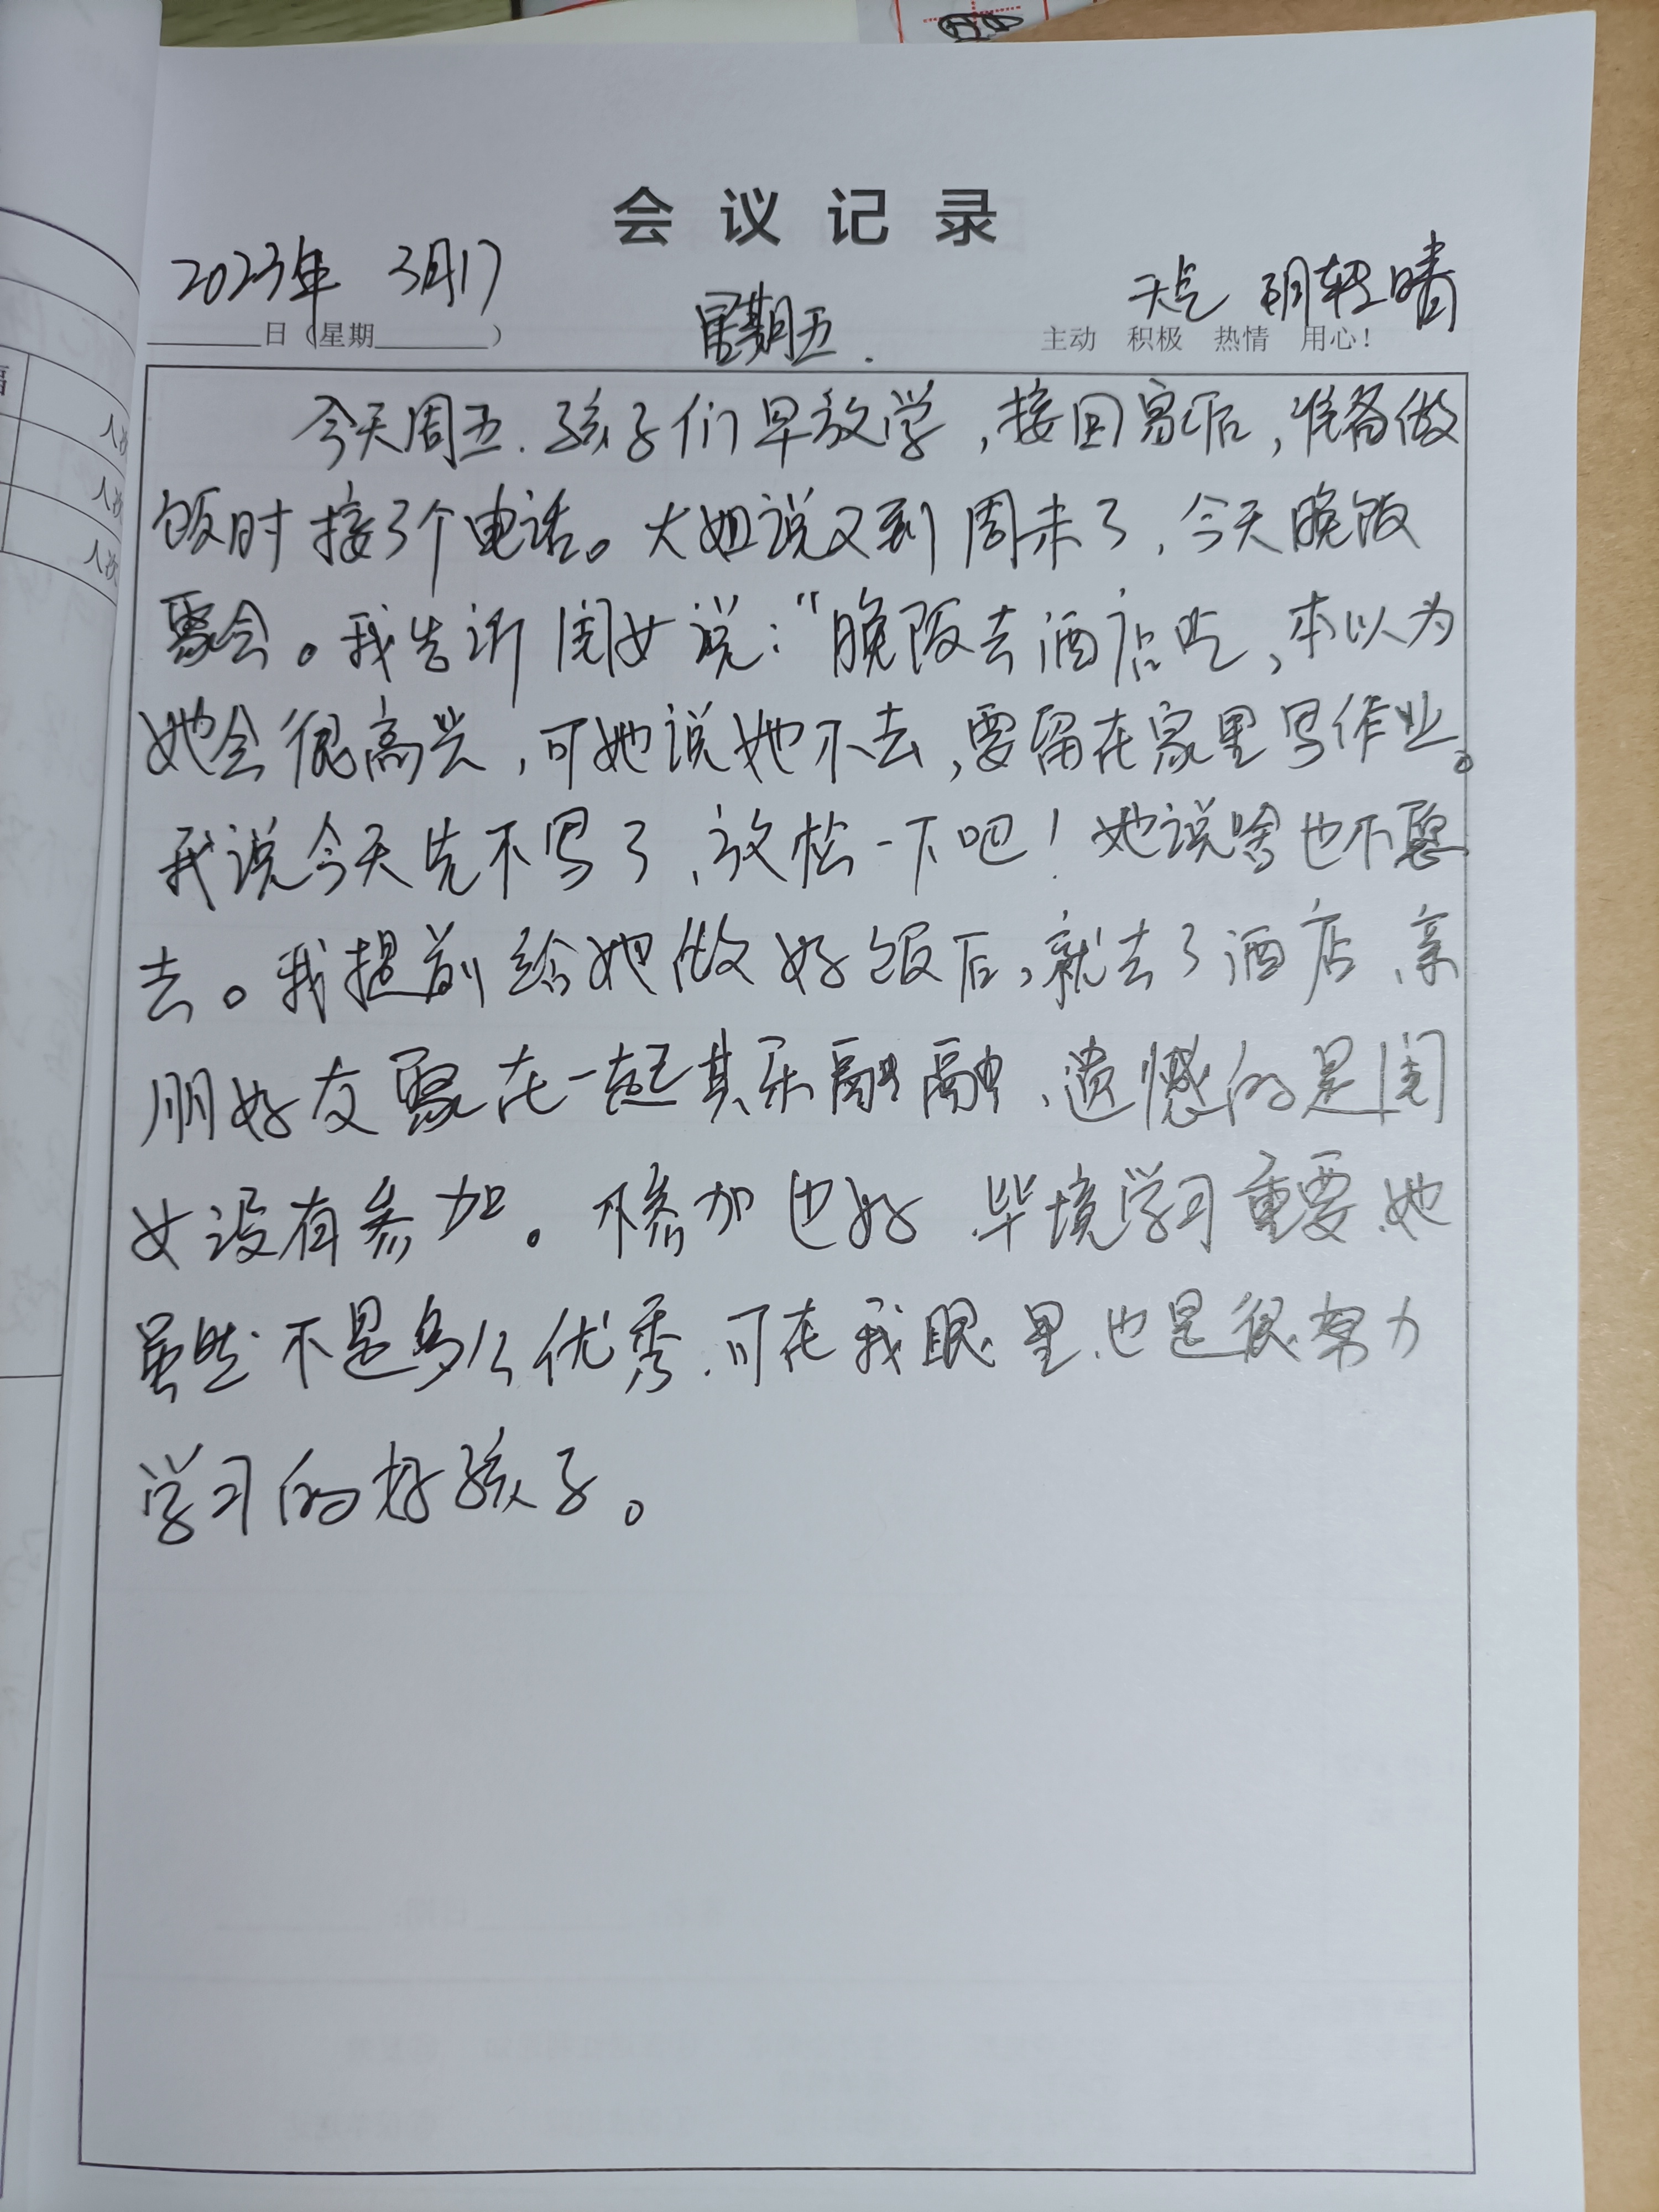 会议记录
2023年 3月17
星期五.
天气 阴转晴
日(星期 )
主动 积极 热情 用心!
今天周五.孩子们早放学,接回家后,准备做
饭时接了个电话。大姐说又到周末了,今天晚饭
聚会。我告诉闺女说:“晚饭去酒店吃,本以为
她会很高兴,可她说她不去,要留在家里写作业。
我说今天先不写了,放松一下吧!她说啥也不愿
去。我提前给她做好饭后,就去了酒店、亲
朋好友聚在一起其乐融融、遗憾的是闺
女没有参加。不参加也好.毕境学习重要、她
虽然不是多么优秀.可在我眼里、也是很努力
学习的好孩子。
人次
人次
人次